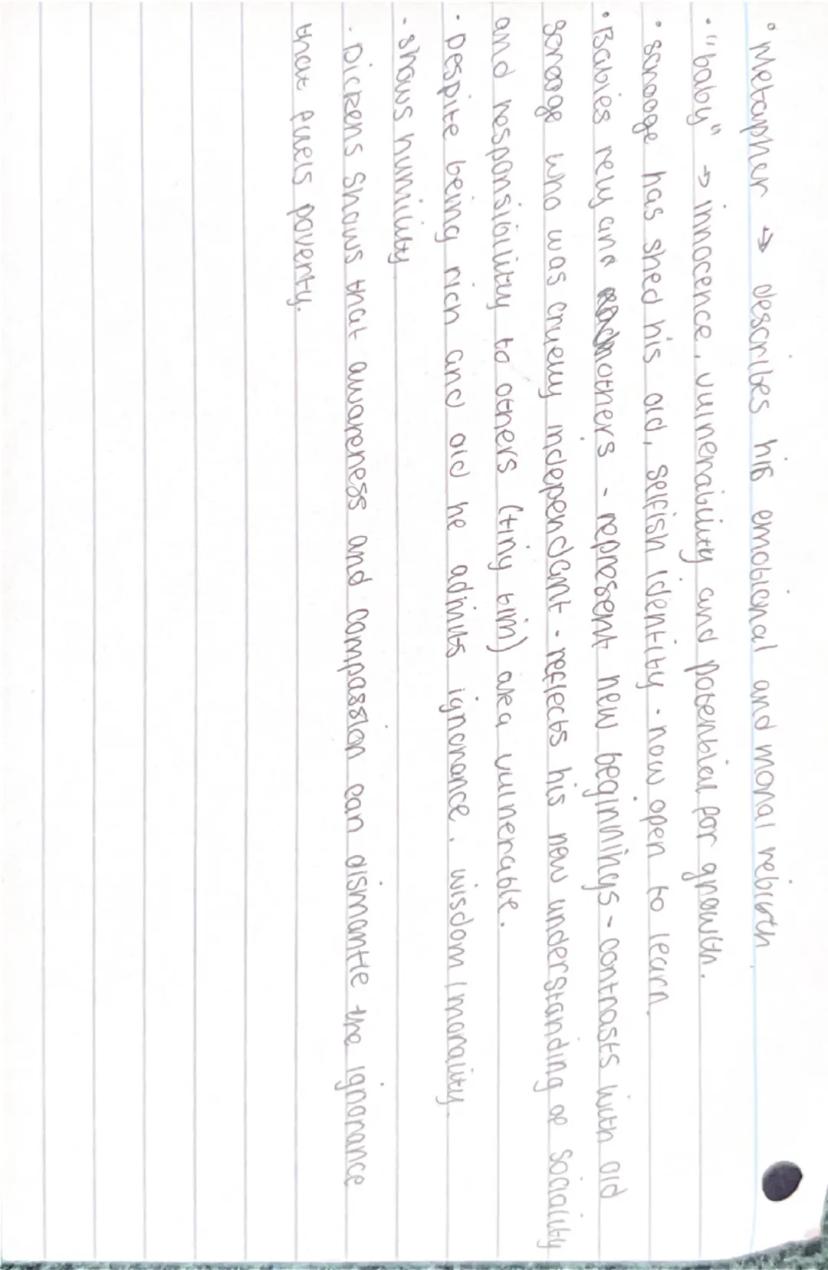 • Metapher → describes his emotional and moral rebirth
• "baby" → innocence, vulnerability and potential for growth.
• Scrooge has shed his old, selfish identity - now open to learn.
• Babies rely and others - represent new beginnings - contrasts with old
Scrooge who was cruelly independant - reflects his new understanding of sociality
and responsibility to others (tiny tim) area vulnerable.
• Despite being rich and old he admits ignorance. wisdom/morality.
- shows humility
• Dickens shows that awareness and compassion can dismantle the ignorance
that fuels poverty.